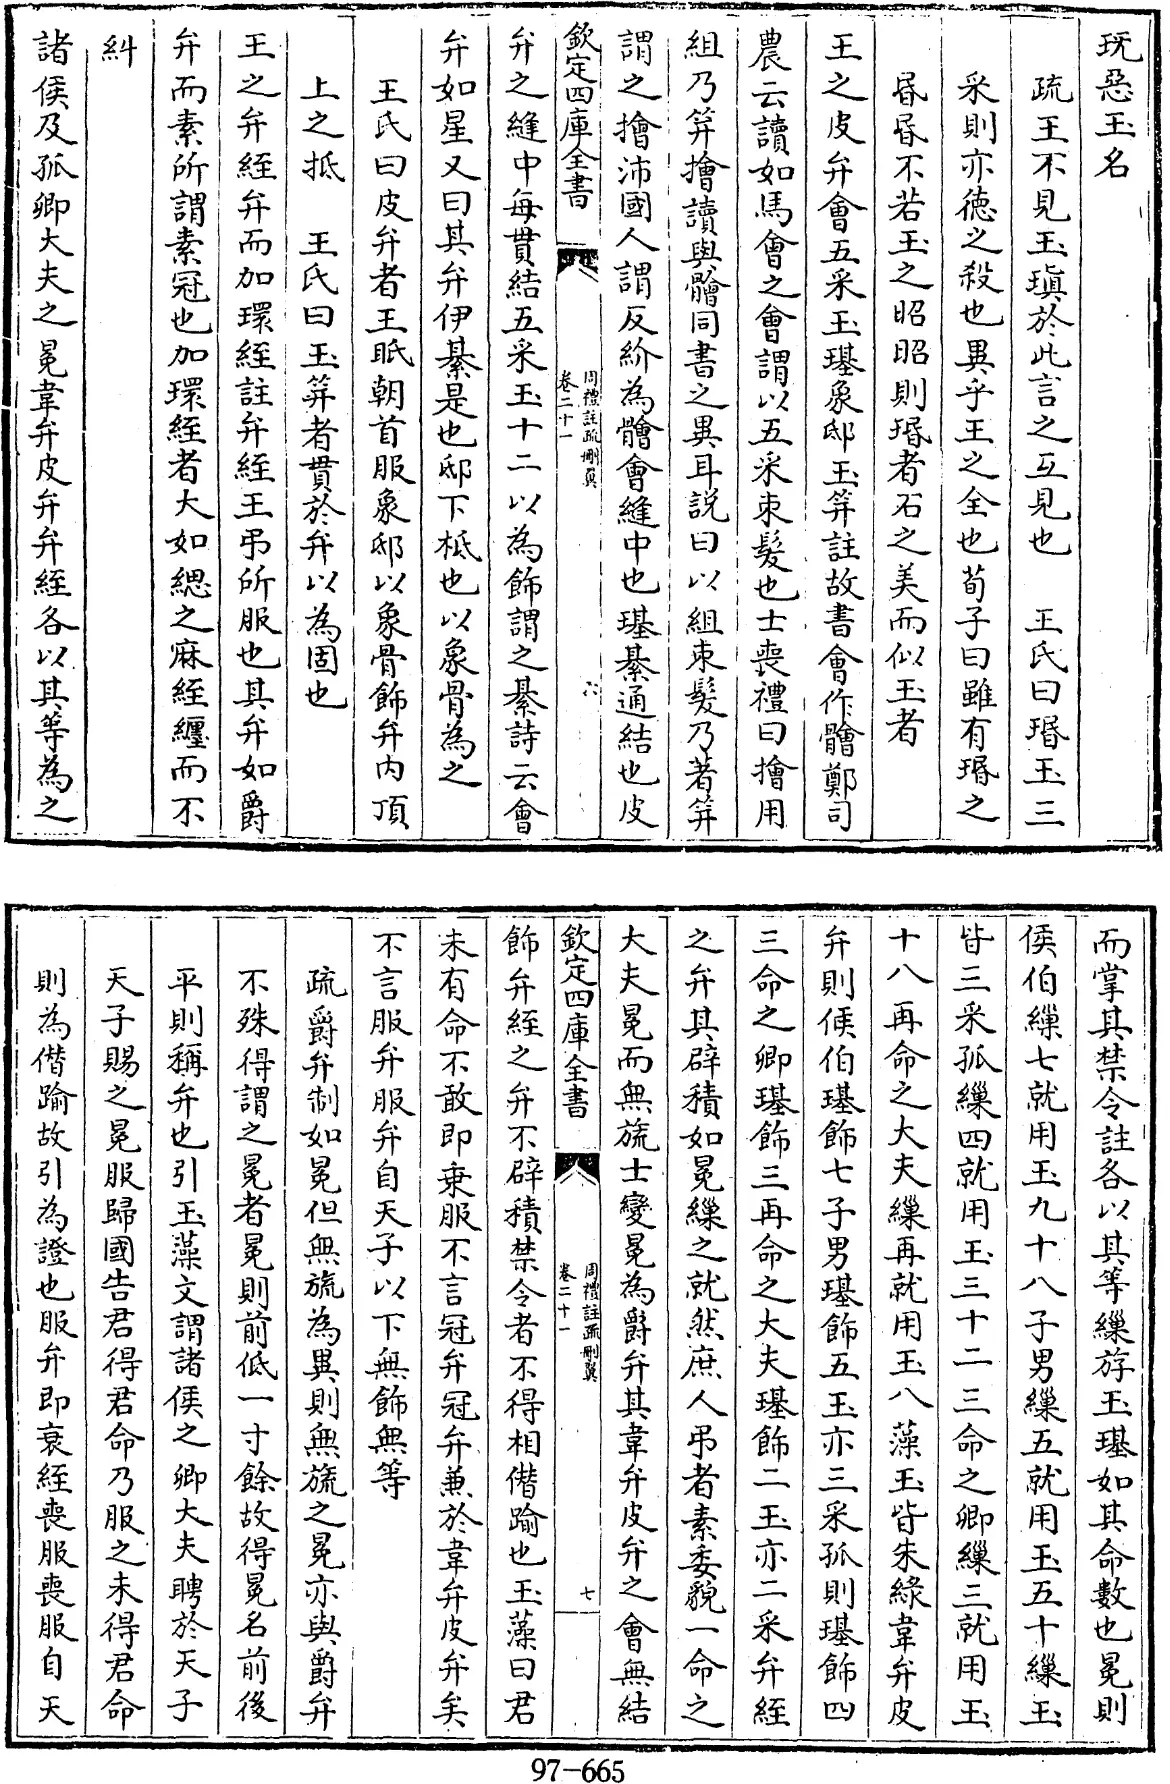 玩惡玉名
疏王不見玉瑱於此言之互見也　王氏曰瑉玉三
采則亦德之殺也異乎王之全也荀子曰雖有瑉之
昬昬不若玉之昭昭則瑉者石之美而似玉者
王之皮弁會五采玉璂象邸玉笄註故書會作䯤鄭司
農云讀如馬會之會謂以五采束髮也士喪禮曰檜用
組乃笄檜讀與䯤同書之異耳説曰以組束髮乃著笄
謂之檜沛國人謂反紒為䯤會縫中也璂綦通結也皮
欽定四庫全書
周禮註疏刪翼
卷二十一
六
弁之縫中每貫結五采玉十二以為飾謂之綦詩云會
弁如星又曰其弁伊綦是也邸下柢也以象骨為之
王氏曰皮弁者王眂朝首服象邸以象骨飾弁内頂
上之抵　王氏曰玉笄者貫於弁以為固也
王之弁絰弁而加環絰註弁絰王弔所服也其弁如爵
弁而素所謂素冠也加環絰者大如緦之麻絰纒而不
糾
諸侯及孤卿大夫之冕韋弁皮弁弁絰各以其等為之
而掌其禁令註各以其等繅斿玉璂如其命數也冕則
侯伯繅七就用玉九十八子男繅五就用玉五十繅玉
皆三采孤繅四就用玉三十二三命之卿繅三就用玉
十八再命之大夫繅再就用玉八藻玉皆朱綠韋弁皮
弁則侯伯璂飾七子男璂飾五玉亦三采孤則璂飾四
三命之卿璂飾三再命之大夫璂飾二玉亦二采弁絰
之弁其辟積如冕繅之就然庶人弔者素委貌一命之
大夫冕而無旒士變冕為爵弁其韋弁皮弁之會無結
欽定四庫全書
周禮註疏刪翼
卷二十一
七
飾弁絰之弁不辟積禁令者不得相僭踰也玉藻曰君
未有命不敢即乗服不言冠弁冠弁兼於韋弁皮弁矣
不言服弁服弁自天子以下無飾無等
疏爵弁制如冕但無旒為異則無旒之冕亦與爵弁
不殊得謂之冕者冕則前低一寸餘故得冕名前後
平則稱弁也引玉藻文謂諸侯之卿大夫聘於天子
天子賜之冕服歸國告君得君命乃服之未得君命
則為僭踰故引為證也服弁即衰絰喪服喪服自天
97-665